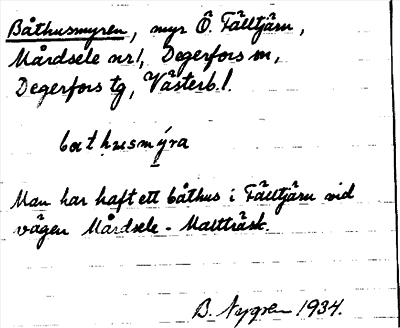 Båthusmyren, myr Ö. Fälltjärn,
Mårdsele nr 1, Degerfors sn,
Degerfors tg, Västerb. l.
båthusmýra
Man har haft ett båthus i Fälltjärn vid
vägen Mårdsele - Maltträsk.
B. Nygren 1934.